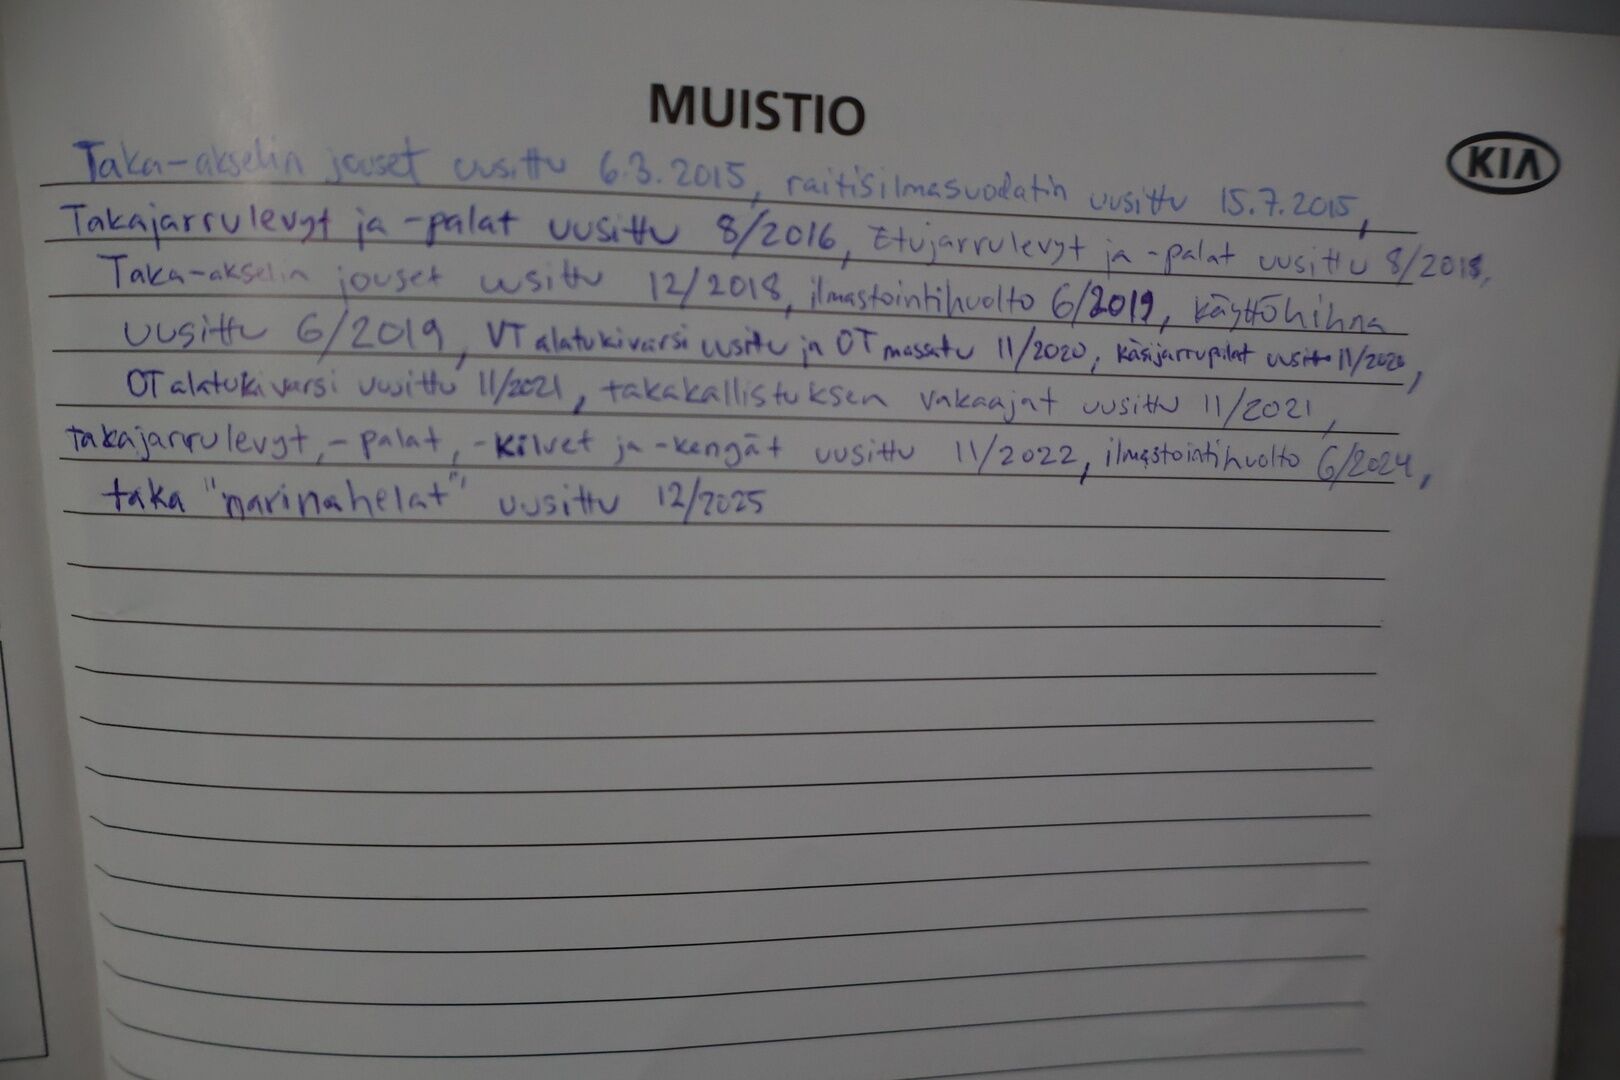 MUISTIO
KIA
Taka-akselin jouset uusittu 6.3.2015, raitisilmasuodatin uusittu 15.7.2015,
Takajarrulevyt ja -palat uusittu 8/2016, Etujarrulevyt ja -palat uusittu 8/2018,
Taka-akselin jouset uusittu 12/2018, ilmastointihuolto 6/2019, käyttöhihna
uusittu 6/2019, VT alatukivarsi uusittu ja OT massattu 11/2020, käsijarrupalat uusittu 11/2020,
OT alatukivarsi uusittu 11/2021, takakallistuksen vakaajat uusittu 11/2021,
takajarrulevyt, -palat, -kilvet ja -kengät uusittu 11/2022, ilmastointihuolto 6/2024,
taka "narinahelat" uusittu 12/2025